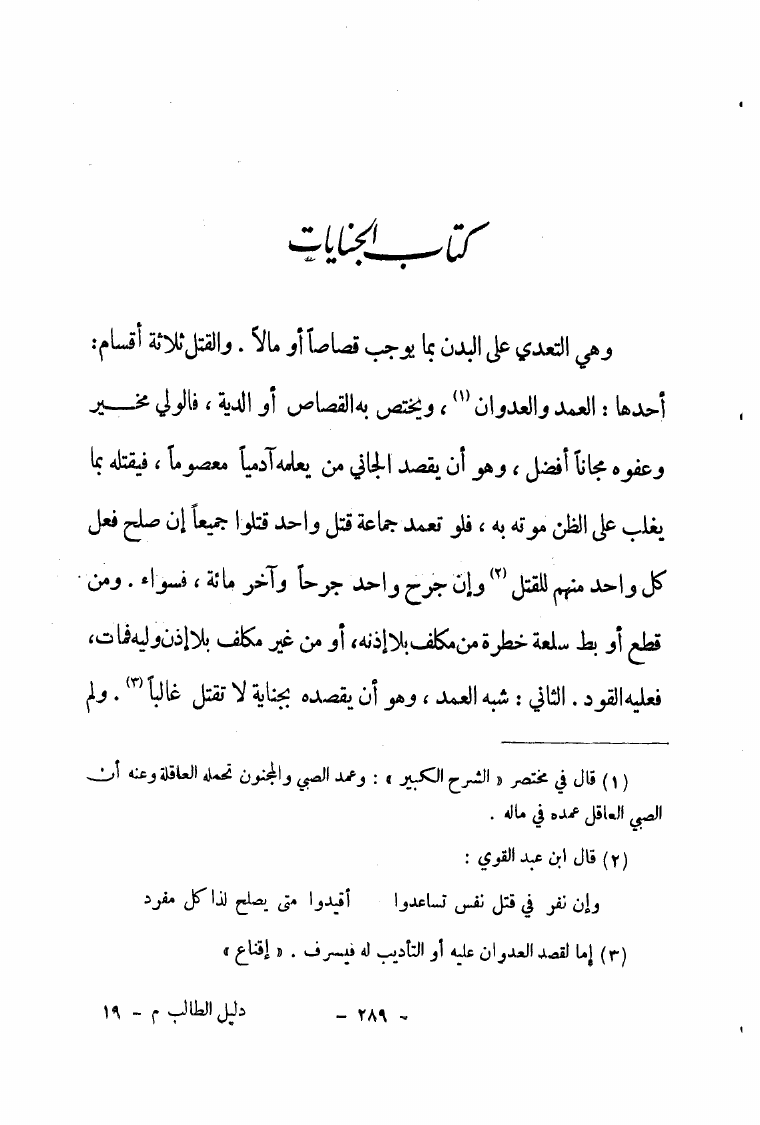 كتاب الجنايات
وهي التعدي على البدن بما يوجب قصاصاً أو مالاً . والقتل ثلاثة أقسام:
أحدها : العمد والعدوان (١) ، ويختص به القصاص أو الدية ، فالولي مخير
وعفوه مجاناً أفضل ، وهو أن يقصد الجاني من يعلمه آدمياً معصوماً ، فيقتله بما
يغلب على الظن موته به ، فلو تعمد جماعة قتل واحد قتلوا جميعاً إن صلح فعل
كل واحد منهم للقتل (٢) وإن جرح واحد جرحاً وآخر مائة ، فسواء . ومن
قطع أو بط سلعة خطرة من مكلف بلا إذنه، أو من غير مكلف بلا إذن وليه فمات،
فعليه القود . الثاني : شبه العمد ، وهو أن يقصده بجناية لا تقتل غالباً (٣) . ولم
(١) قال في مختصر « الشرح الكبير » : وعمد الصبي والمجنون تحمله العاقلة وعنه أن
الصبي العاقل عمده في ماله .
(٢) قال ابن عبد القوي :
وإن نفر في قتل نفس تساعدوا أقيدوا متى يصلح لذا كل مفرد
(٣) إما لقصد العدوان عليه أو التأديب له فيسرف . « إقناع »
- ٢٨٩ - دليل الطالب م - ١٩